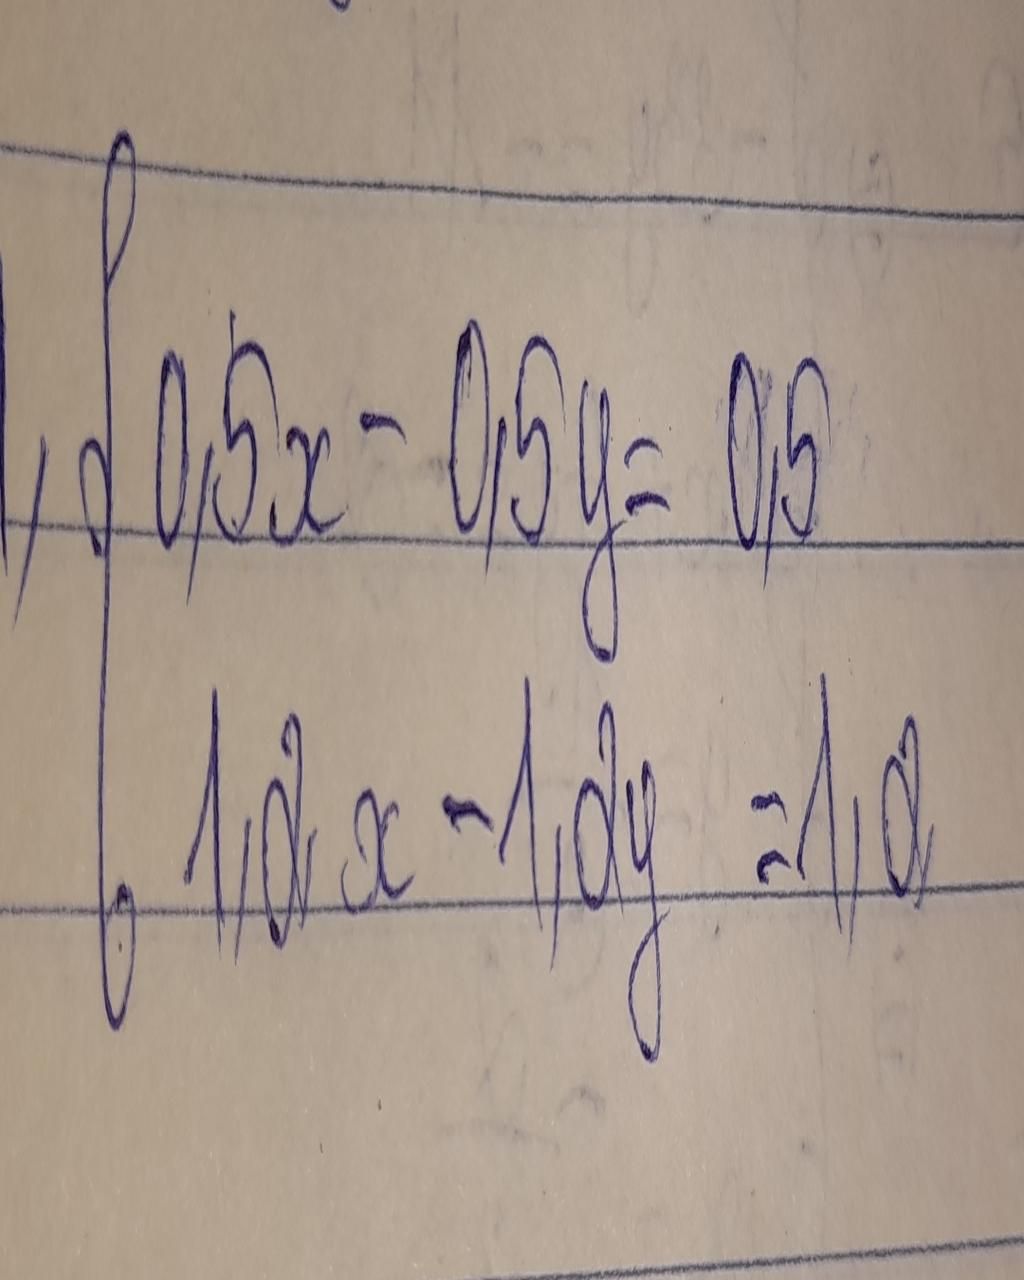 { 0,5x - 0,5y = 0,5
1,2x - 1,2y = 1,2